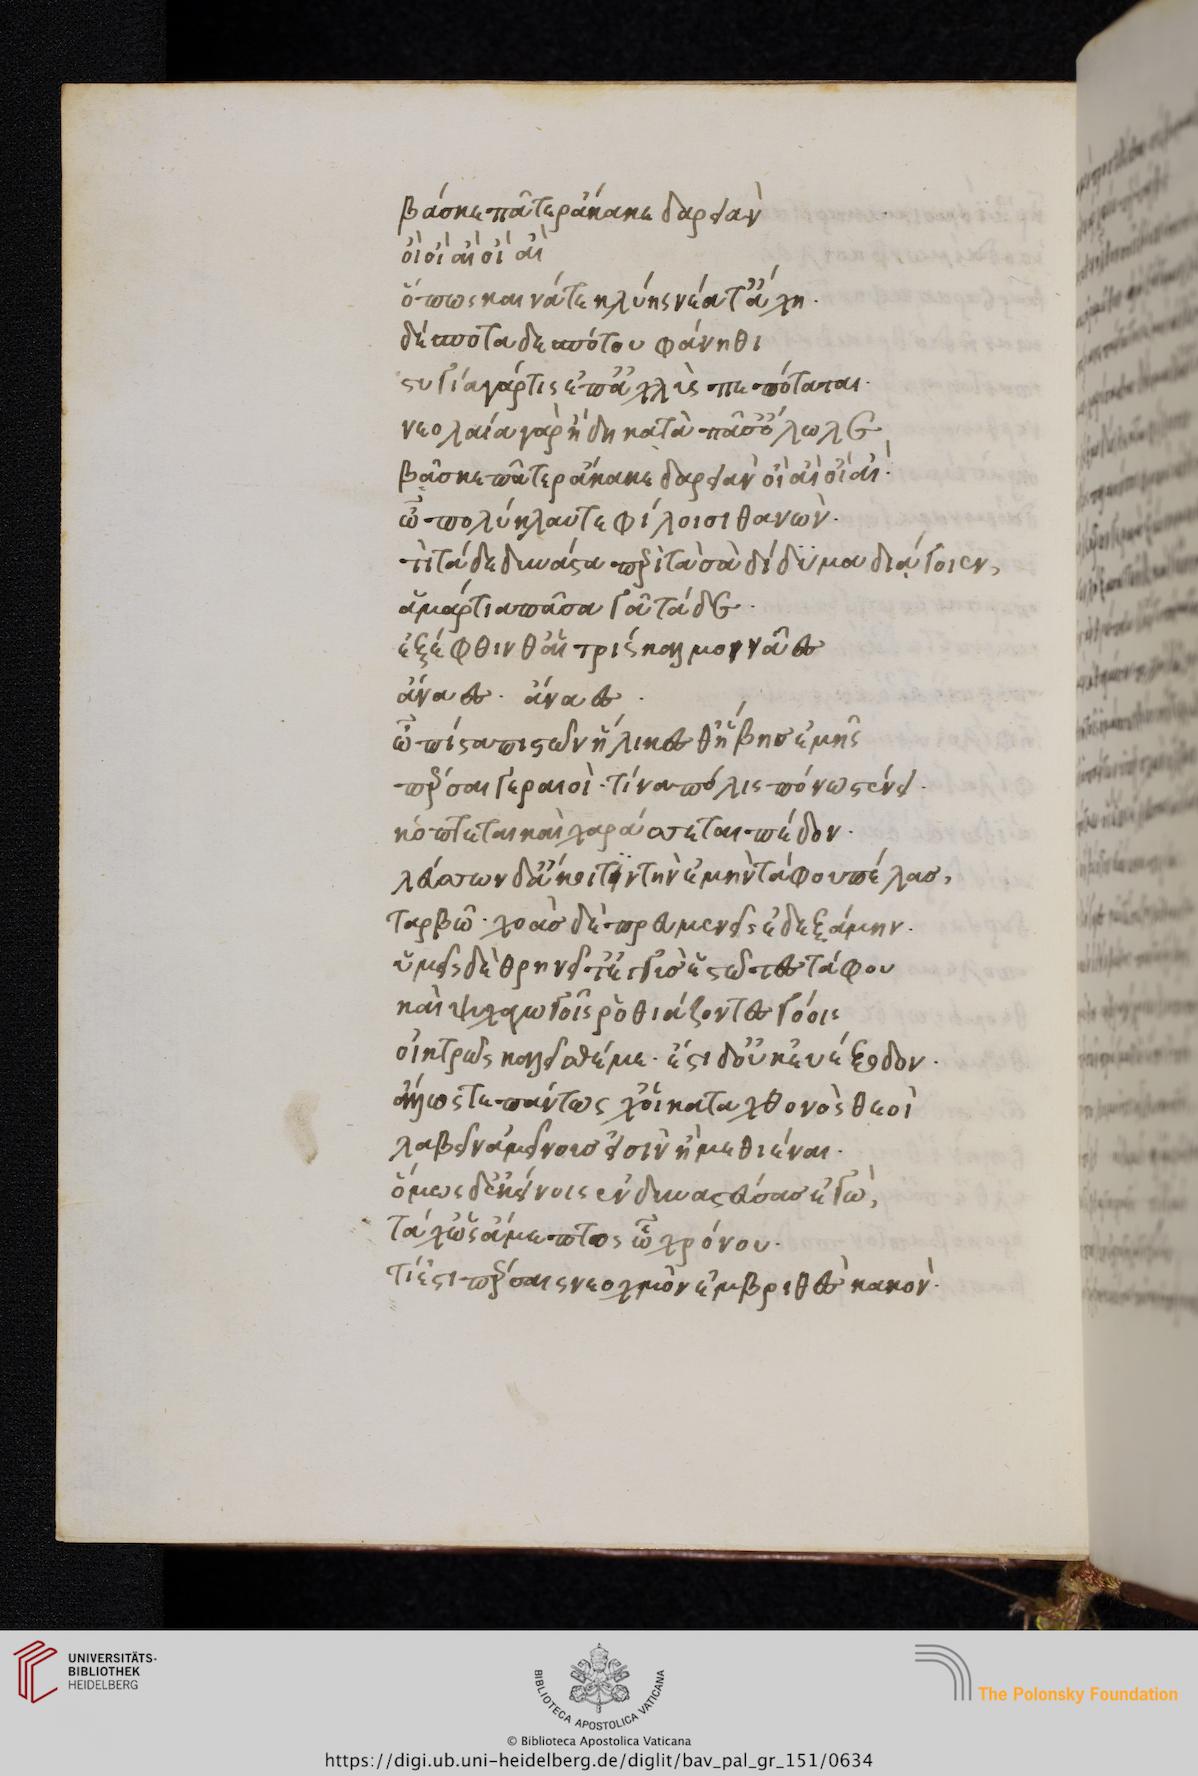 βάσκε πᾶτερ ἄκακε δαρειὰν
οἲ οἲ αἲ οἲ αἲ
ὅπως καινά τε κλύης νέα τ' ἄχη.
δέσποτα δεσπότου φάνηθι
στυγία γάρ τις ἐπ' ἀχλὺς πεπόταται.
νεολαία γὰρ ἤδη κατὰ πᾶσ' ὄλωλεν
βᾶσκε πᾶτερ ἄκακε δαρειὰν οἲ αἲ οἲ αἲ.
ὦ πολύκλαυτε φίλοισι θανὼν.
τὶ τάδε δυνάστα περὶ τὰ σὰ δίδυμα διάγοιεν,
ἁμάρτια πᾶσα γᾶ τάδε.
ἐξέφθινθ' αἱ τρίσκαλμοι νᾶες
ἄναες. ἄναες.
ὦ πίστα πιστῶν ἥλικες θ' ἥβης ἐμῆς
πέρσαι γεραιοὶ. τίνα πόλις πόνον στένει.
κόπτεται καὶ χαράσσεται πέδον.
λεύσσων δ' ἄκοιτιν τὴν ἐμὴν τάφου πέλας,
ταρβῶ. χοὰς δὲ πρευμενεῖς ἐδεξάμην.
ὑμεῖς δὲ θρηνεῖτ' ἐγγὺς ἑστῶτες τάφου
καὶ ψυχαγωγοῖς ὀρθιάζοντες γόοις
οἰκτρῶς καλεῖσθέ με. ἐστὶ δ' οὐκ εὐέξοδον.
ἄλλως τε πάντως χοἱ κατὰ χθονὸς θεοὶ
λαβεῖν ἀμείνους εἰσὶν ἢ μεθιέναι.
ὅμως δ' ἐκείνοις ἐνδυναστεύσας ἐγὼ,
τάχυν' ὡς ἄμεμπτος ὦ χρόνου.
τί ἐστι πέρσαις νεοχμὸν ἐμβριθὲς κακὸν.
UNIVERSITÄTS-
BIBLIOTHEK
HEIDELBERG
BIBLIOTECA APOSTOLICA VATICANA
The Polonsky Foundation
© Biblioteca Apostolica Vaticana
https://digi.ub.uni-heidelberg.de/diglit/bav_pal_gr_151/0634